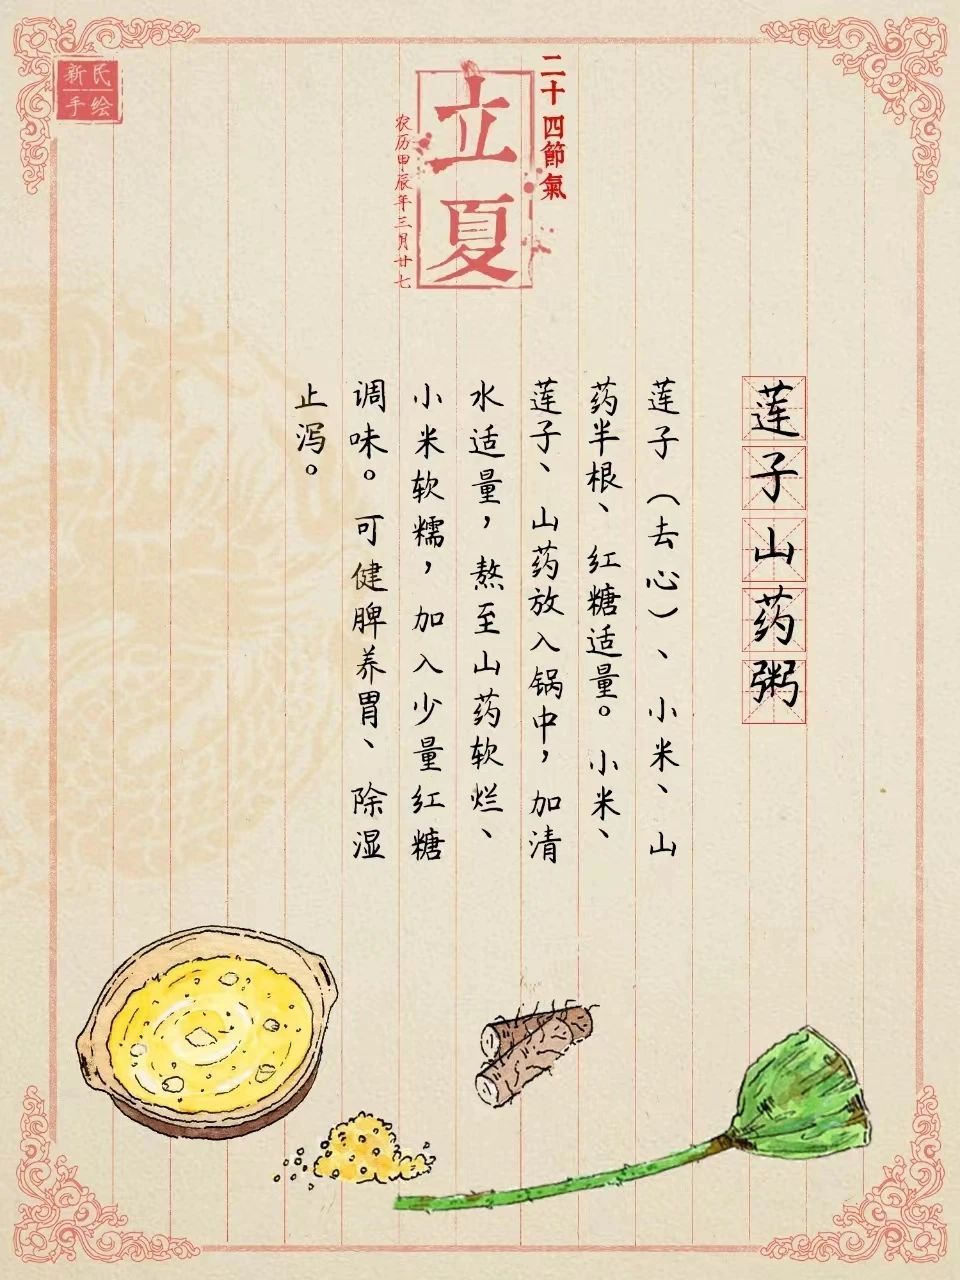 新民
手绘
二十四節氣
立夏
农历甲辰年三月廿七
莲子山药粥
莲子（去心）、小米、山
药半根、红糖适量。小米、
莲子、山药放入锅中，加清
水适量，熬至山药软烂、
小米软糯，加入少量红糖
调味。可健脾养胃、除湿
止泻。